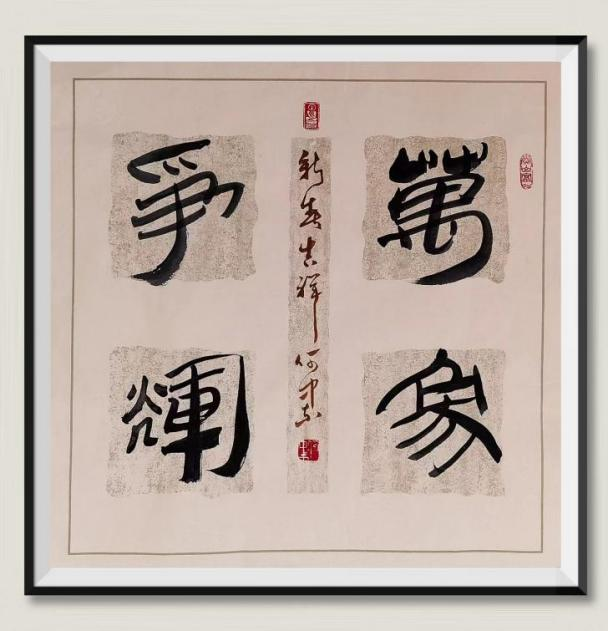 萬象
爭輝
新春吉祥 何